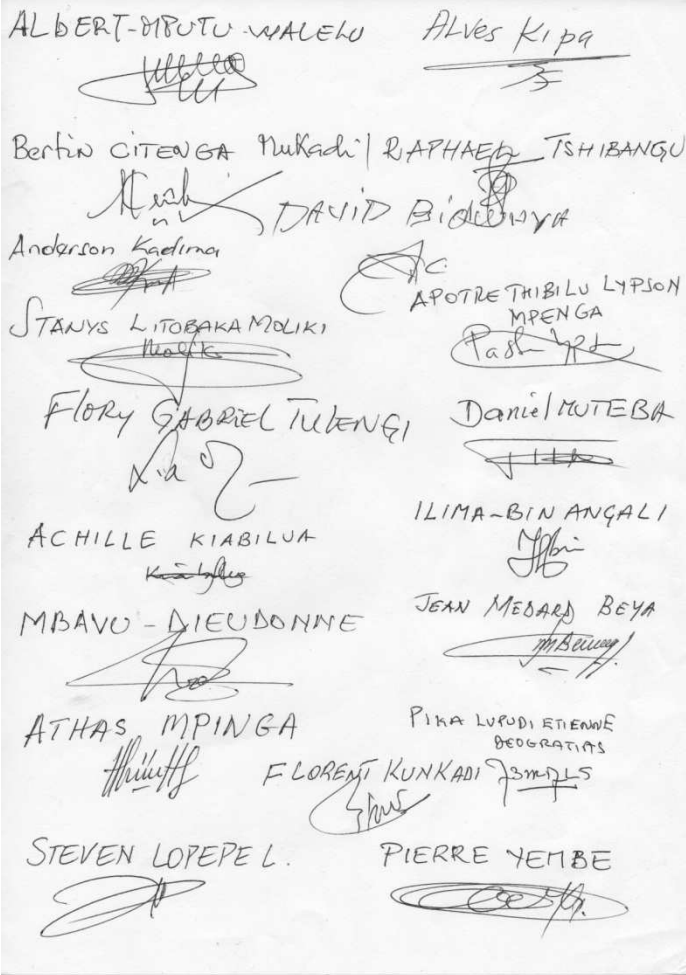 ALBERT-MPUTU-WALELU
ALVes Kipa
Bertin CITENGA Mukadi | RAPHAEL TSHIBANGU
DAVID
Anderson Kadima
APOTRE THIBILU LYPSON
MPENGA
STANYS LITOBAKA MOLIKI
Molik
Flory GABRIEL TULENGI
Daniel MUTEBA
ILIMA-BIN ANGALI
ACHILLE KIABILUA
JEAN MEDARD BEYA
MBAVU-DIEUDONNE
ATHAS MPINGA
PIKA LUPUDI ETIENNE
DEOGRATIAS
FLORENT KUNKADI
STEVEN LOPEPE L.
PIERRE YEMBE